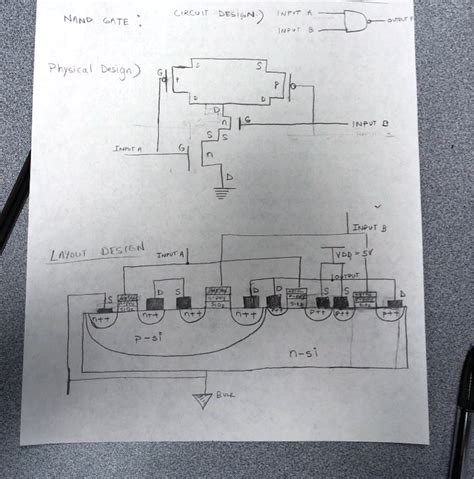 NAND GATE : CIRCUIT DESIGN:) INPUT A OUTPUT
INPUT B
Physical Design:)
S S
G P P
D D
D
n G INPUT B
S S
INPUT A G n
D
LAYOUT DESIGN INPUT A INPUT B
VDD = 5V
OUTPUT
S D S D D S S D
n++ n++ n++ n++ P++ P++ P++ P++
P-si
n-si
BULK